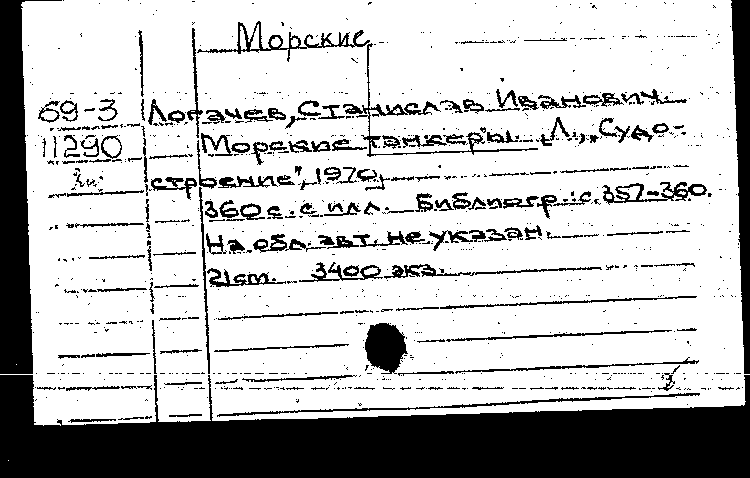 Морские
69-3 Логачев, Станислав Иванович.
11290 Морские танкеры. Л., „Судо-
строение", 1970.
360 с. с илл. Библиогр.: с. 357-360.
На обл. авт. не указан.
21 cm. 3400 экз.